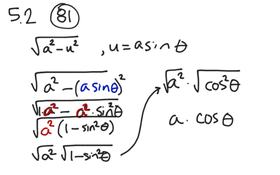 5.2 (81)
√a² - u² , u = a sin θ
√a² - (a sin θ)²
√1·a² - a²·sin²θ
√a² (1 - sin²θ)
√a² √1 - sin²θ
√a² · √cos²θ
a · cos θ